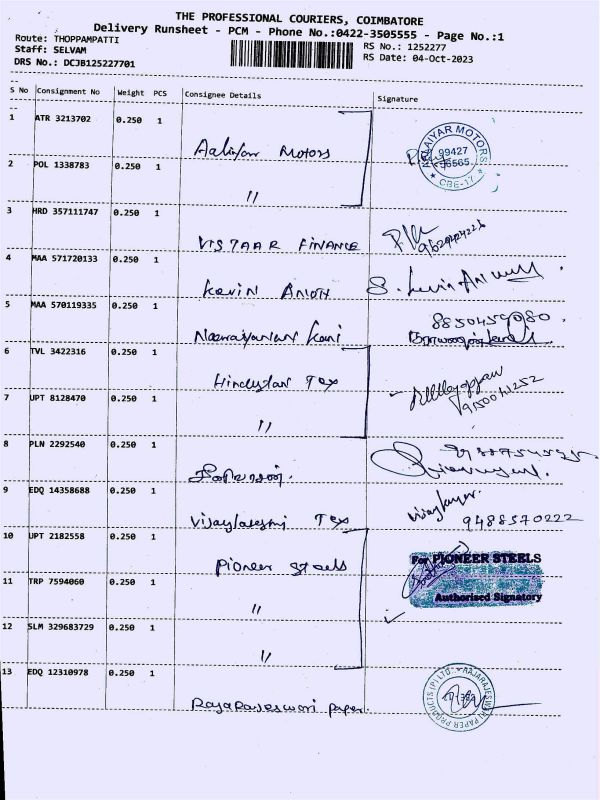 THE PROFESSIONAL COURIERS, COIMBATORE
Delivery Runsheet - PCM - Phone No.:0422-3505555 - Page No.:1
Route: THOPPAMPATTI
Staff: SELVAM
DRS No.: DCJB125227701
RS No.: 1252277
RS Date: 04-Oct-2023
S No Consignment No Weight PCS Consignee Details Signature
1 ATR 3213702 0.250 1
Aaliyar Motors
ALAIYAR MOTORS
99427
96565
* CBE-17 *
2 POL 1338783 0.250 1
"
3 HRD 357111747 0.250 1
VISTAAR FINANCE
4 MAA 571720133 0.250 1
Kevin Anioth
5 MAA 570119335 0.250 1
Naarayanan Kani
8850459080
6 TVL 3422316 0.250 1
Hindustan Tex
7 UPT 8128470 0.250 1
"
9150041252
8 PLN 2292540 0.250 1
9 EDQ 14358688 0.250 1
Vijaylaxshmi Tex
9488570222
10 UPT 2182558 0.250 1
Pioneer Steels
For PIONEER STEELS
Authorised Signatory
11 TRP 7594060 0.250 1
"
12 SLM 329683729 0.250 1
"
13 EDQ 12310978 0.250 1
RajaRajeswari paper
RAJARAJESWARI PAPER PRODUCTS (P) LTD.